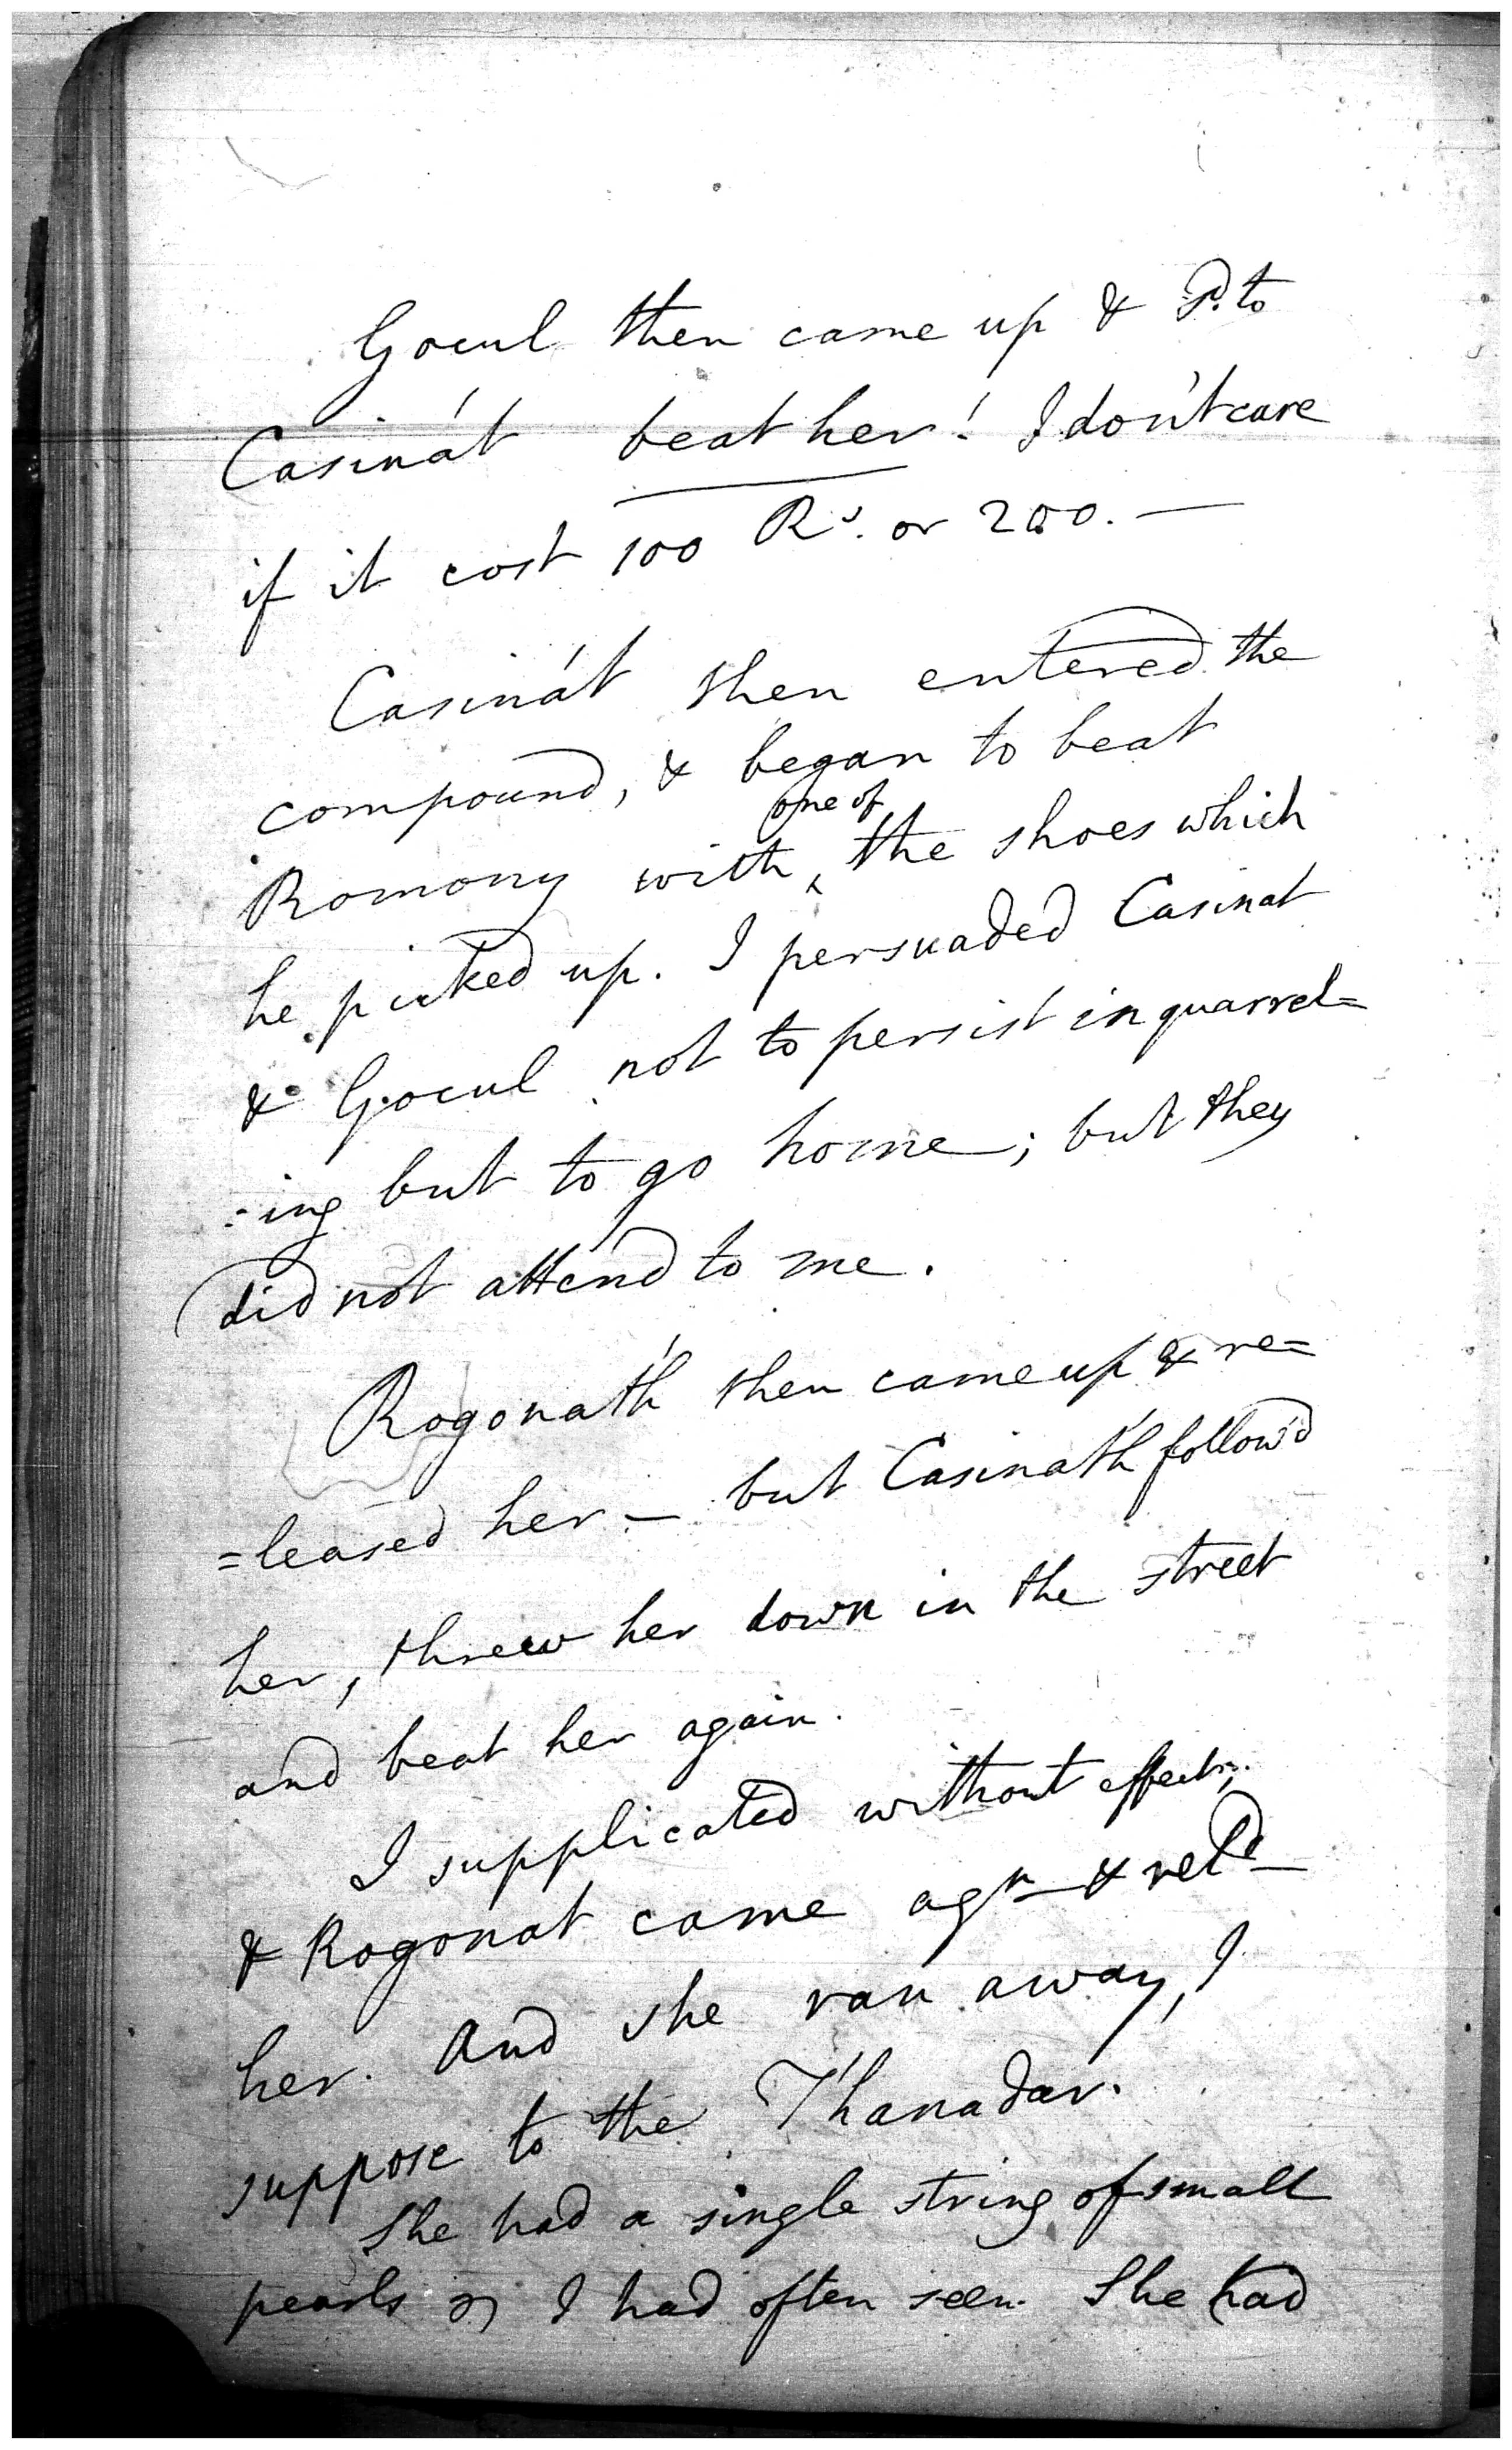 Gocul then came up & S. to
Casinát beat her! I don't care
if it cost 100 Rs. or 200. —
Casinát then entered the
compound, & began to beat
one of
Romony with ‸ the shoes which
he picked up. I persuaded Casinat
& Gocul not to persist in quarrel=
=ing but to go home; but they
did not attend to me.
Rogonáth then came up & re=
=leased her — but Casináth follow'd
her, threw her down in the street
and beat her again.
I supplicated without effect;
& Rogonat came agn & reld
her. And she ran away, I
suppose to the Thanadar.
She had a single string of small
pearls I had often seen. She had